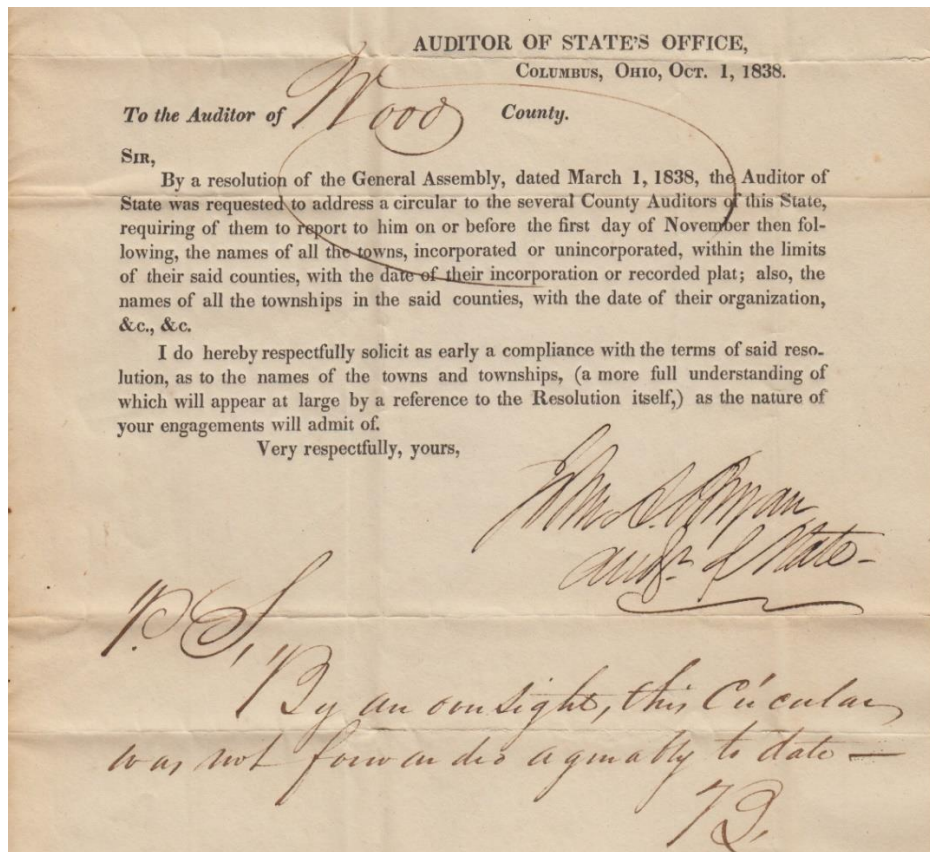 AUDITOR OF STATE'S OFFICE,
COLUMBUS, OHIO, OCT. 1, 1838.
To the Auditor of Wood County.
SIR,
By a resolution of the General Assembly, dated March 1, 1838, the Auditor of
State was requested to address a circular to the several County Auditors of this State,
requiring of them to report to him on or before the first day of November then fol-
lowing, the names of all the towns, incorporated or unincorporated, within the limits
of their said counties, with the date of their incorporation or recorded plat; also, the
names of all the townships in the said counties, with the date of their organization,
&c., &c.
I do hereby respectfully solicit as early a compliance with the terms of said reso-
lution, as to the names of the towns and townships, (a more full understanding of
which will appear at large by a reference to the Resolution itself,) as the nature of
your engagements will admit of.
Very respectfully, yours,
John A. Bryan
Audr. of State
P. S,
By an oversight, this Circular
was not forwarded agreeably to date —
B.